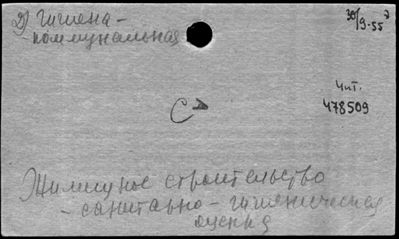 2) гигиена -
- коммунальная
30/9-55 г
Чит.
478509
С
Жилищное строительство
- санитарно - гигиеническая
оценка